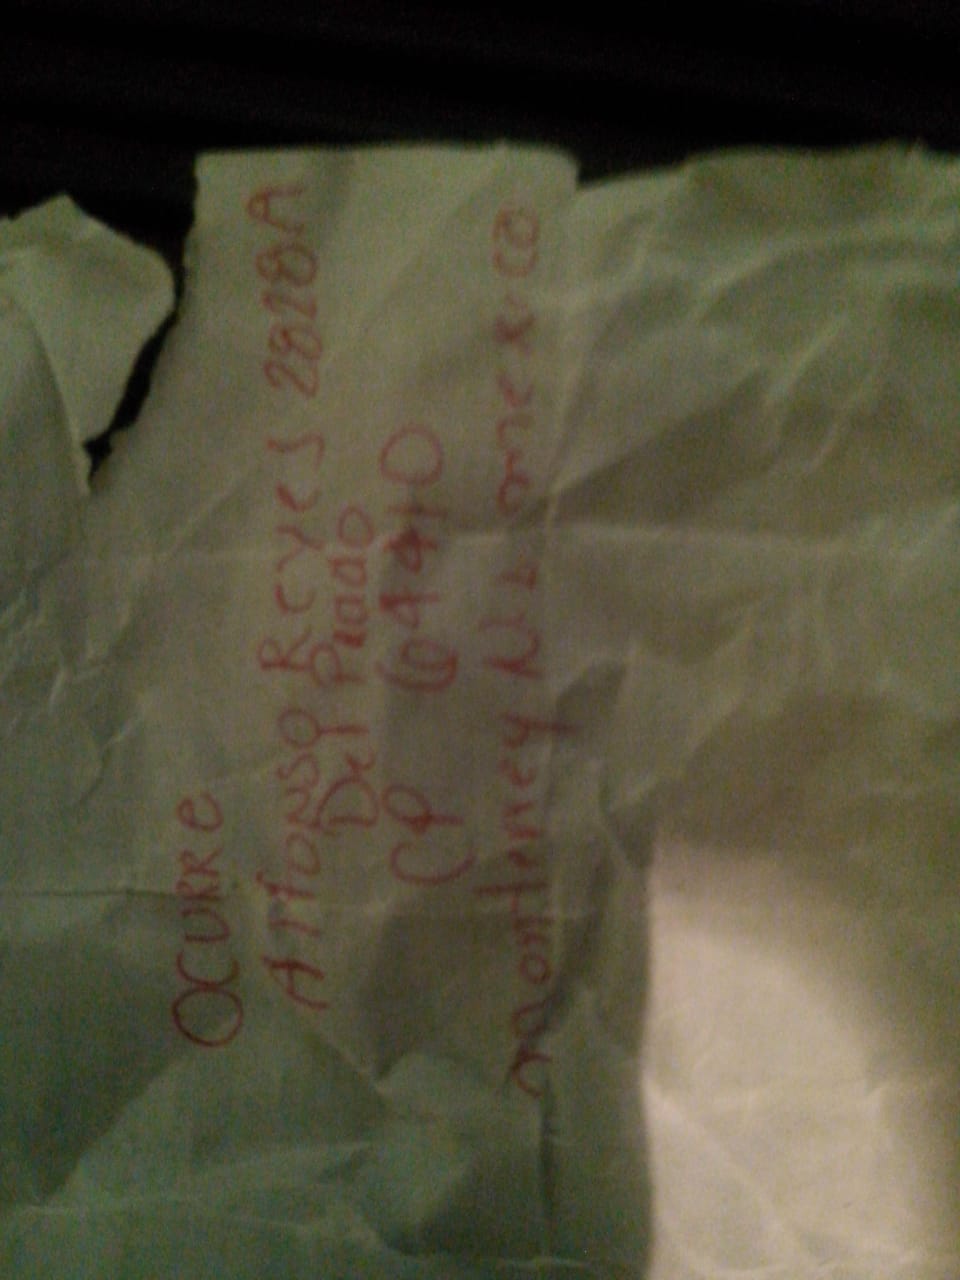 OCURRe
Alfonso Reyes 2828A
Del Prado
CP 64410
monterrey N.L mexico